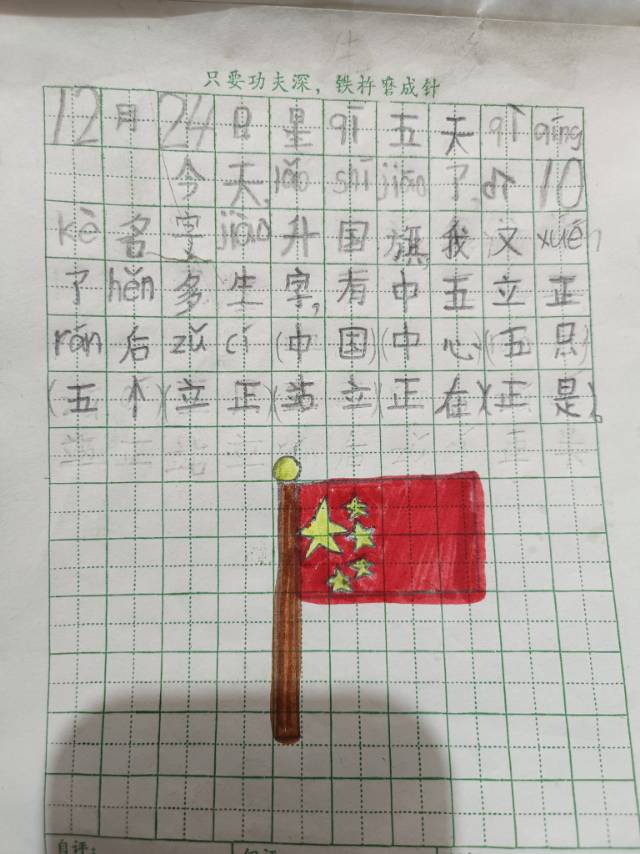 只要功夫深，铁杵磨成针
12月24日星qī五天qì qíng
今天,lǎo shī jiāo了第10
kè名字jiào升国旗,我又xué
了hěn多生字,有中五立正
rán后zǔ cí(中国)(中心)(五星)
(五个)(立正)(站立)(正在)(正是)。
自评: